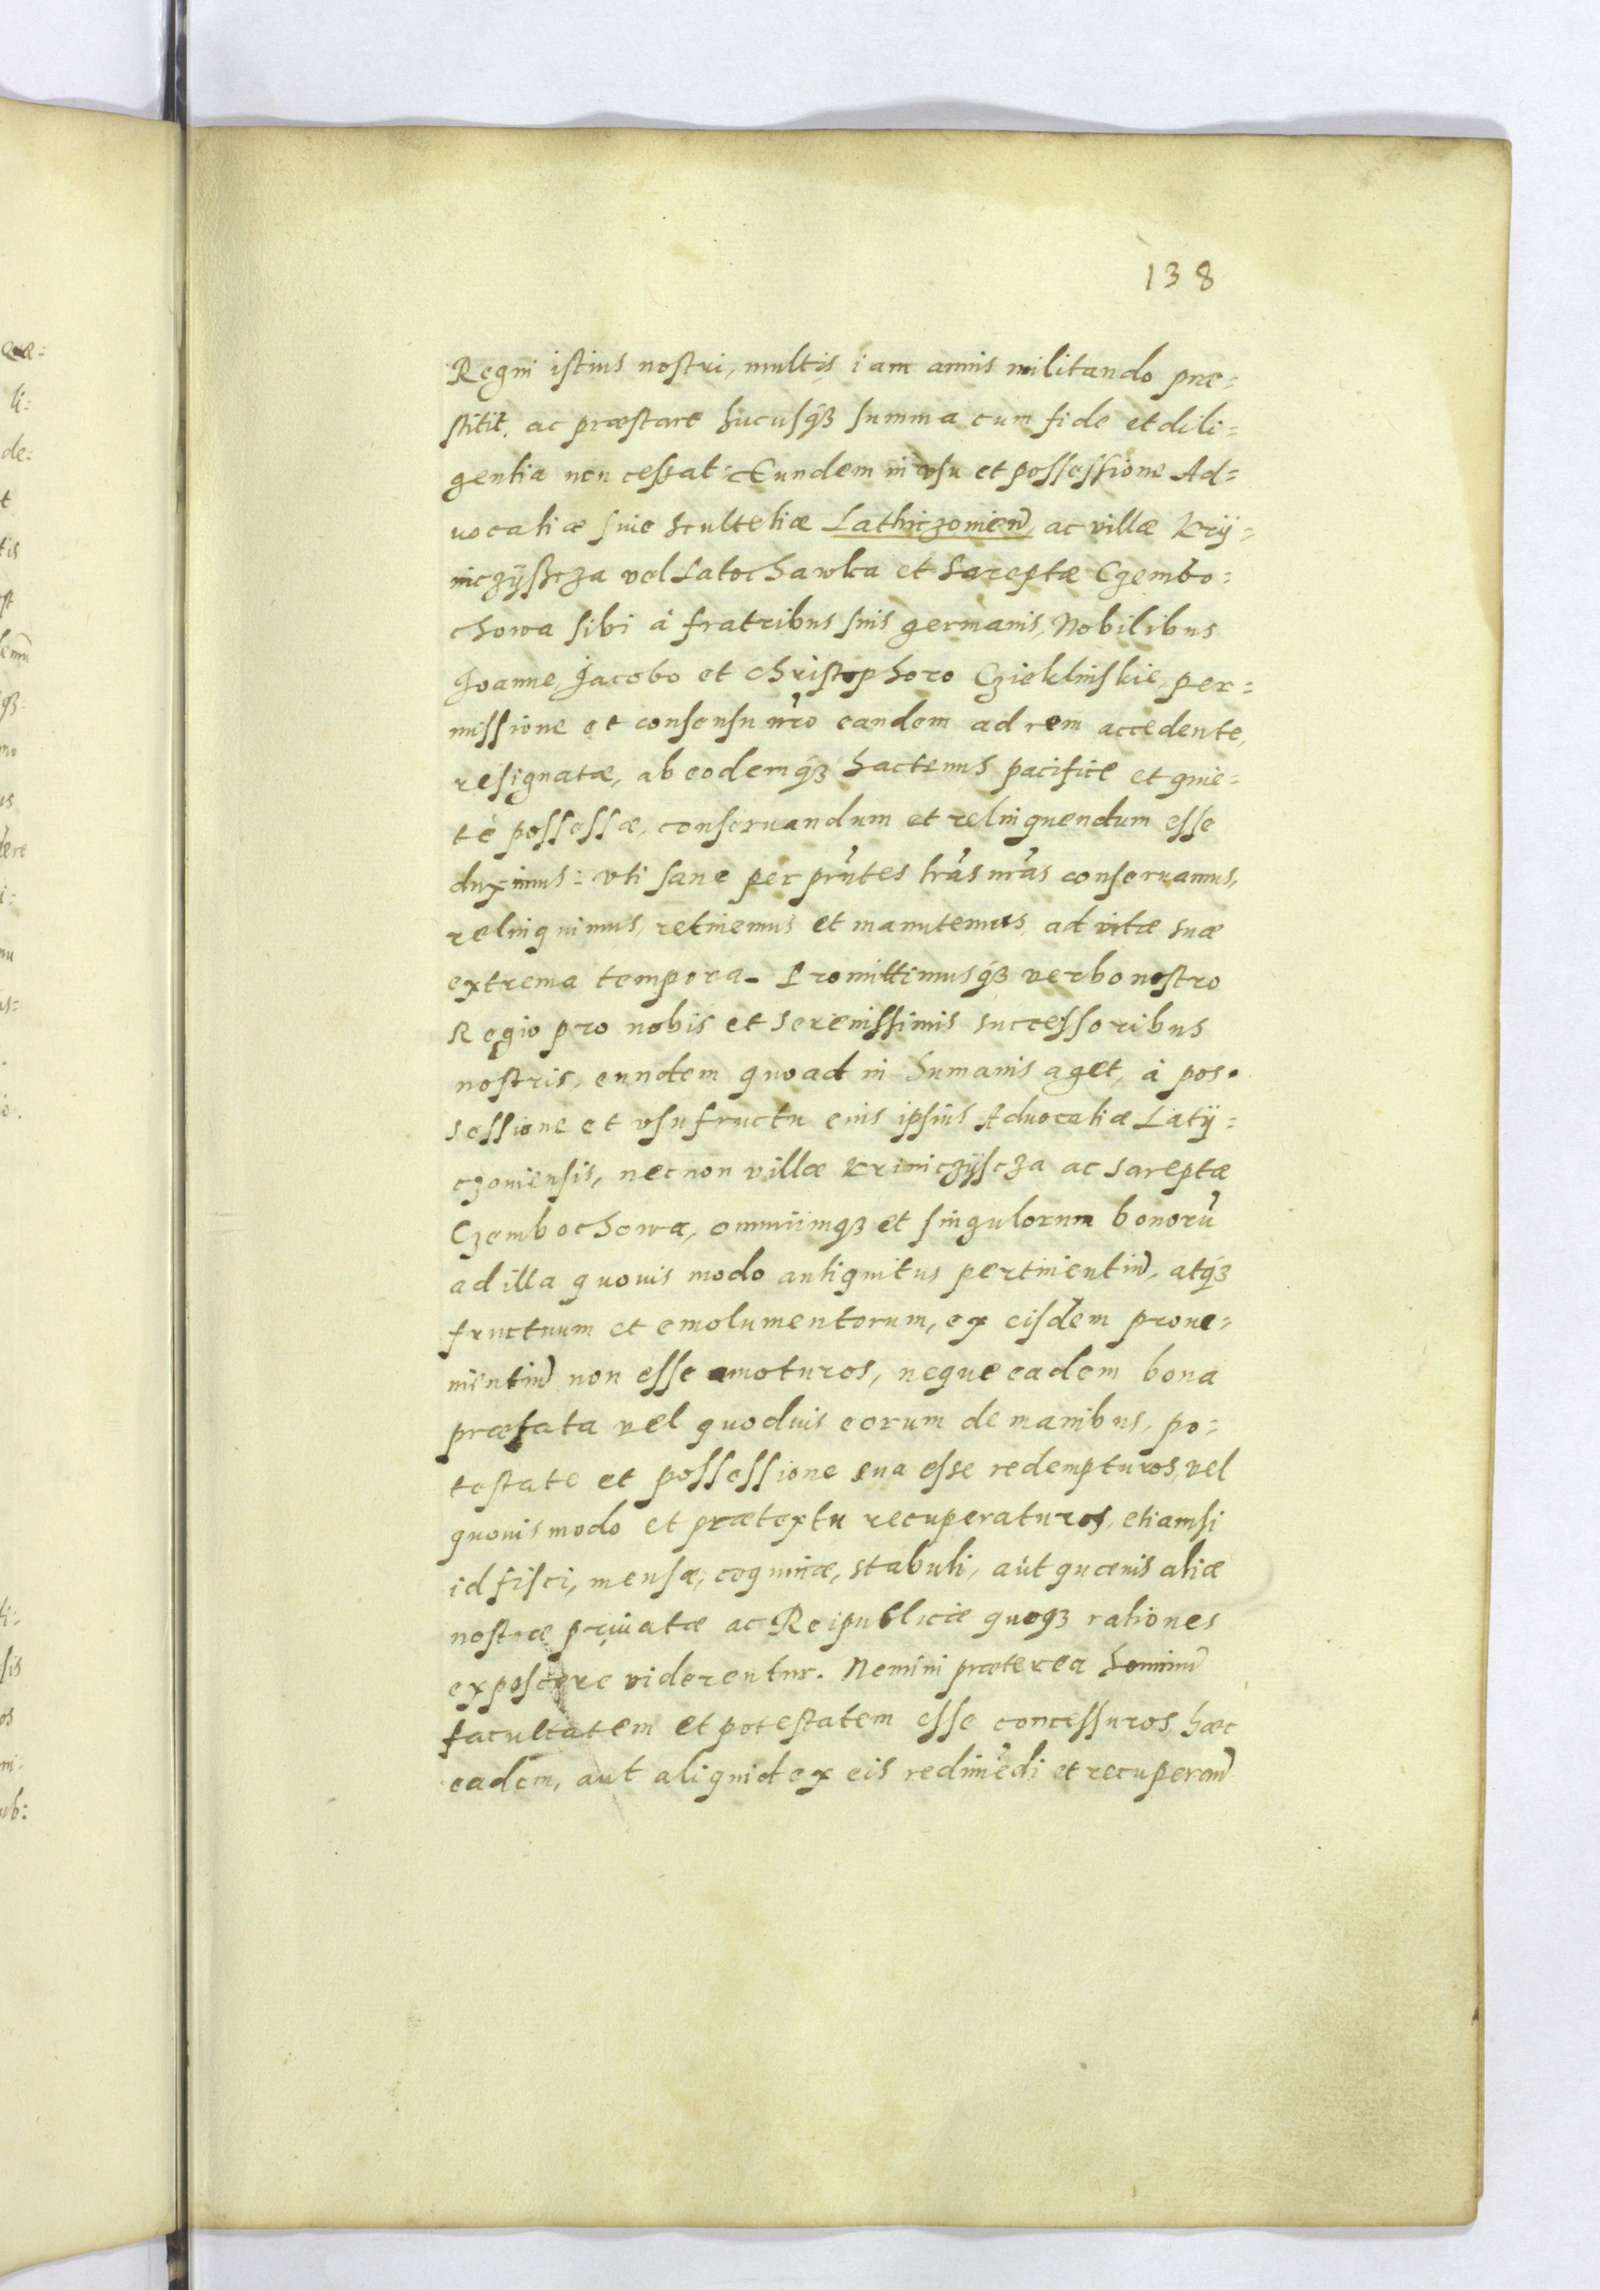 138
Regni istius nostri, multis iam annis militando præ=
stitit, ac præstare hucusq3 summa cum fide et dili=
gentia non cessat: Eundem in vsu et possessione Ad=
uocatiæ siue scultetiæ Lathiczonien̄ ac villæ Krÿ=
niczÿszcza vel Latochawka et Sareptæ Czembo=
chowa sibi à fratribus suis germanis, Nobilibus
Joanne, Jacobo et Christophoro Czieklinskie, per=
missione et consensu nr̃o eandem ad rem accedente,
resignatæ, ab eodemq3 hactenus pacifice et quie=
tè possessæ, conseruandum et relinquendum esse
duximus: vti sane per prñtes lrãs nrãs conseruamus,
relinquimus, retinemus et manutemus, ad vitæ suæ
extrema tempora. Promittimusq3 verbo nostro
Regio pro nobis et Serenissimis successoribus
nostris, eundem quoad in humanis aget, à pos=
sessione et vsufructu eius ipsius Aduocatiæ Latÿ=
czoniensis, necnon villæ Kriniczÿscza ac Sareptæ
Czembochowæ, omniũmq3 et singulorum bonorũ
ad illa quouis modo antiquitus pertinentiũ, atq3
fructuum et emolumentorum, ex eisdem proue=
nientiũ non esse amoturos, neque eadem bona
præfata vel quoduis eorum de manibus, po=
testate et possessione sua esse redempturos, vel
quouis modo et prætextu recuperaturos, etiamsi
id fisci, mensæ, coquinæ, stabuli, aut quæuis aliæ
nostræ priuatæ ac Reipublicæ quoq3 rationes
exposcere viderentur. Nemini præterea hominũ
facultatem et potestatem esse concessuros, hæc
eadem, aut aliquid ex eis redimẽdi et recuperan̄